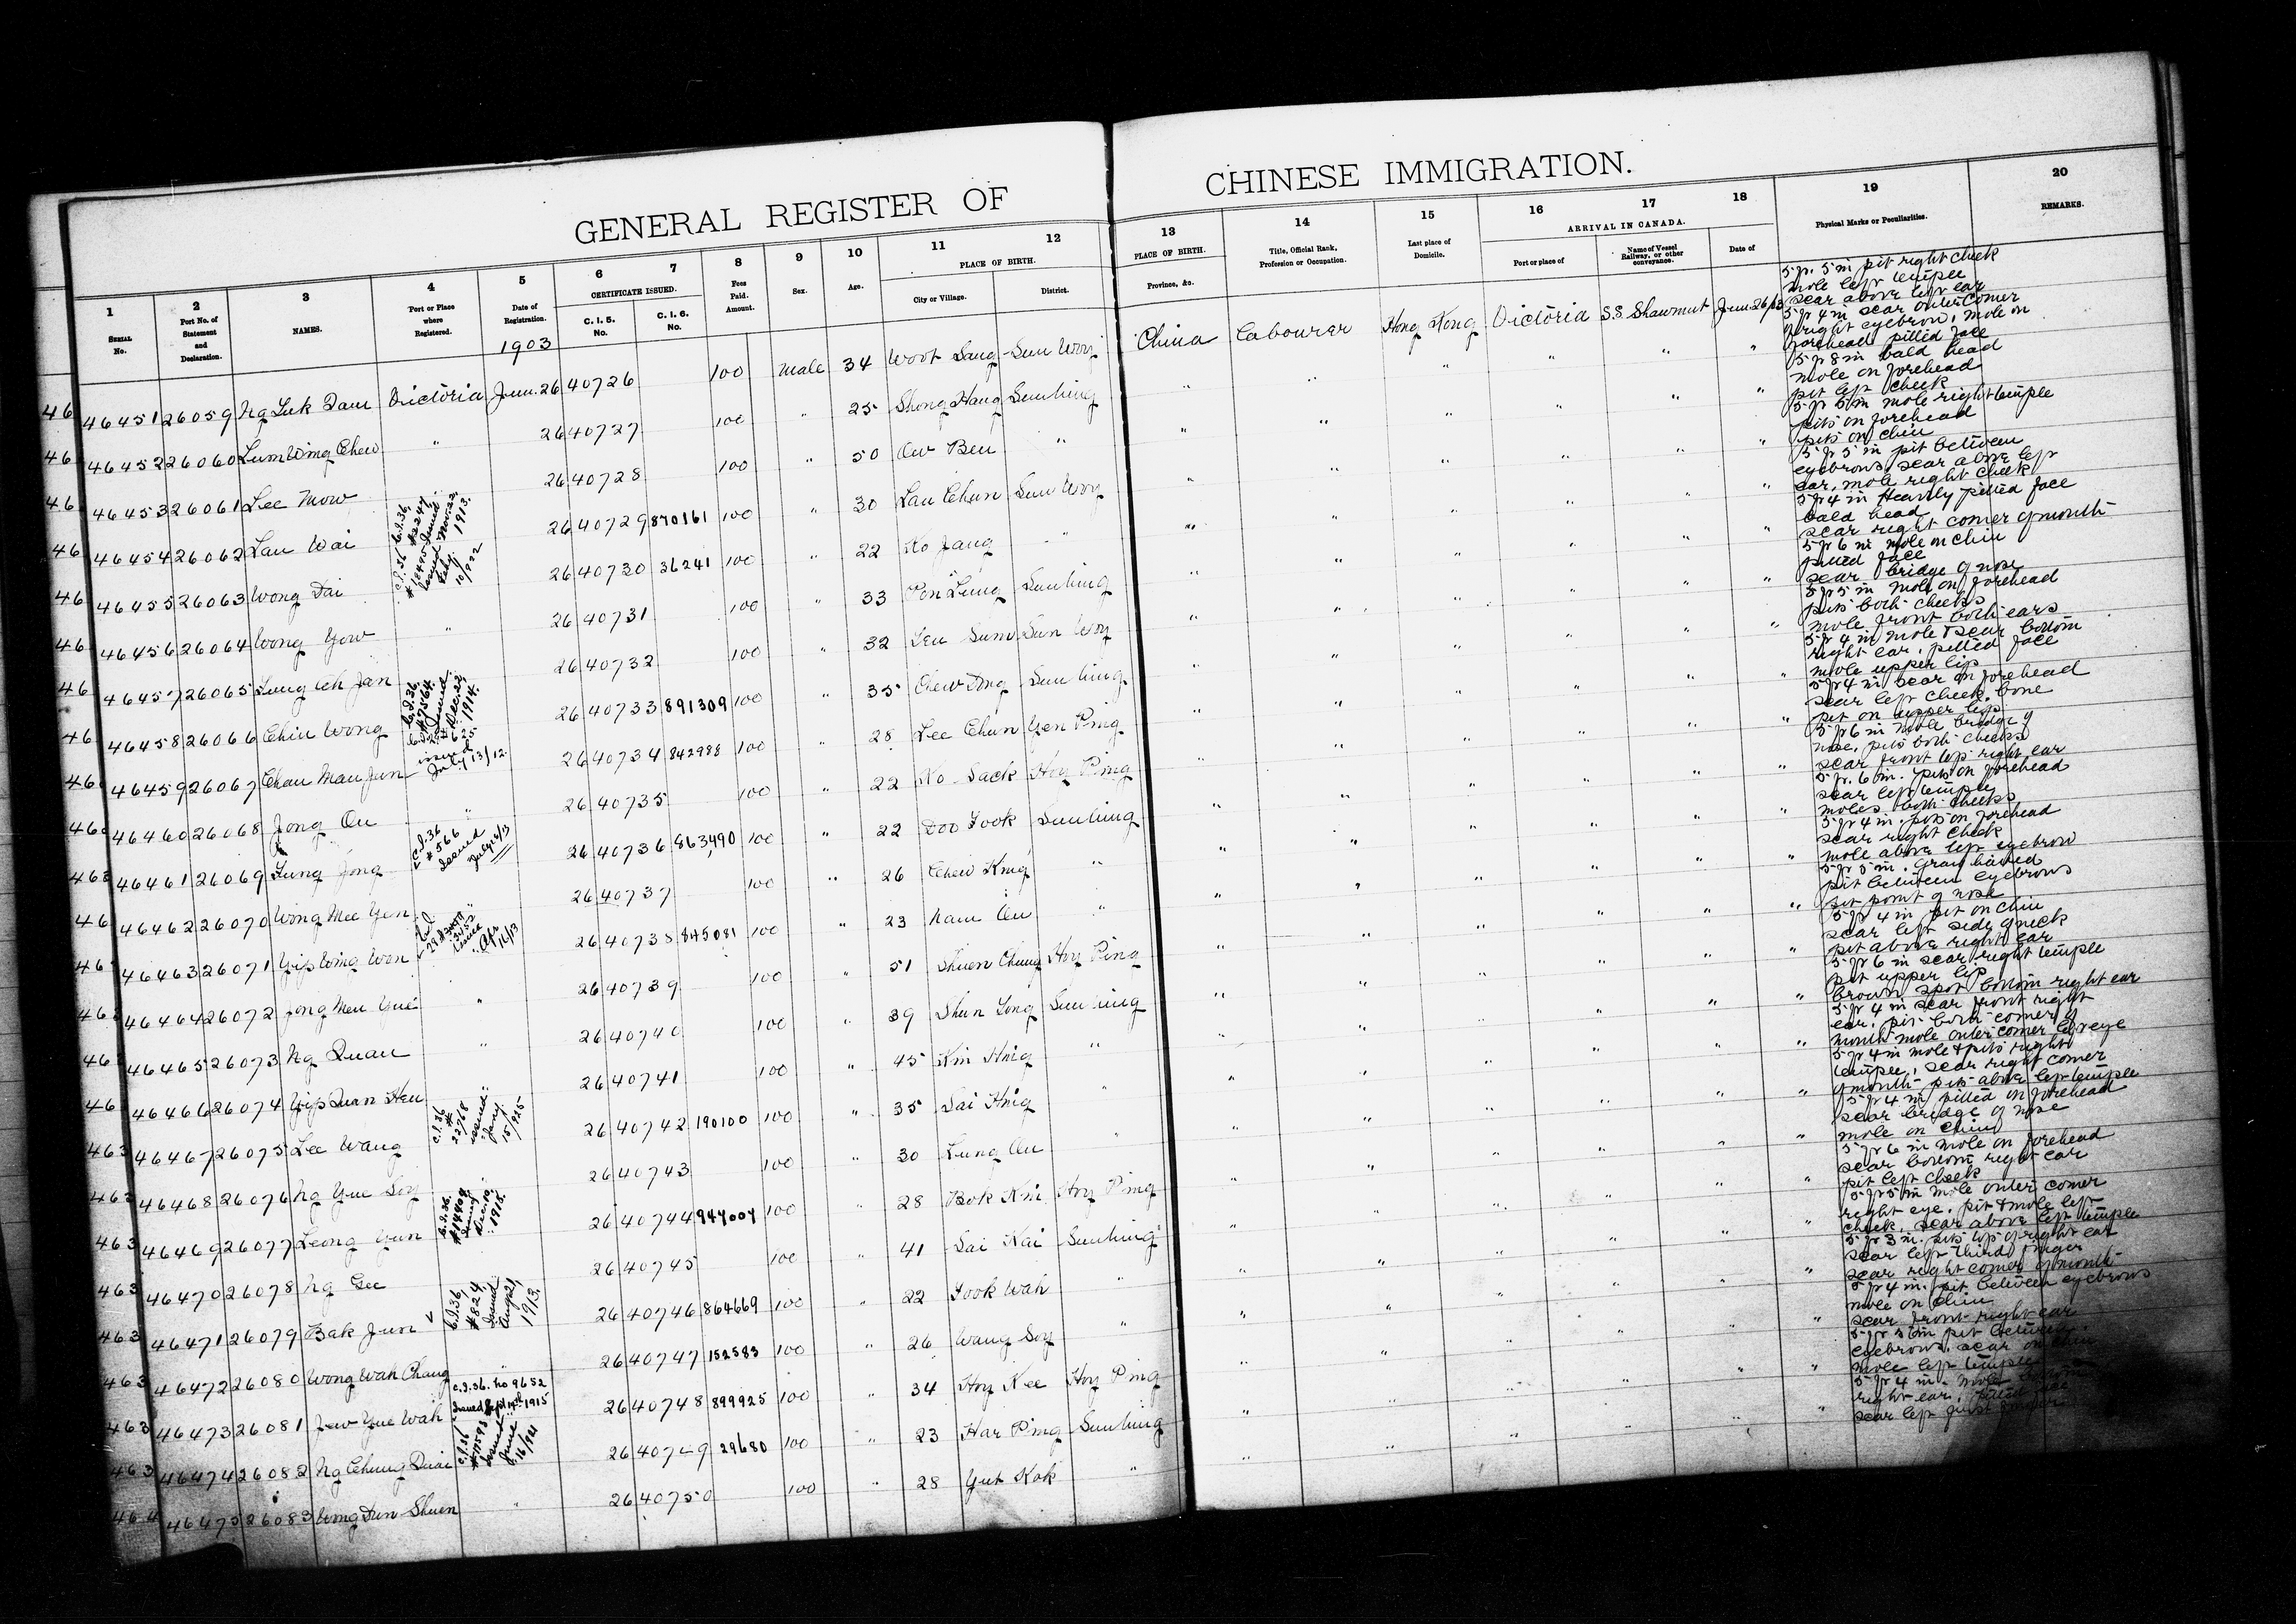 GENERAL REGISTER OF CHINESE IMMIGRATION.
1 2 3 4 5 6 7 8 9 10 11 12 13 14 15 16 17 18 19 20
SERIAL No. Port No. of Statement and Declaration. NAMES. Port or Place where Registered. Date of Registration. CERTIFICATE ISSUED. C. I. 5. No. C. I. 6. No. Fees Paid. Amount. Sex. Age. PLACE OF BIRTH. City or Village. District. PLACE OF BIRTH. Province, &c. Title, Official Rank, Profession or Occupation. Last place of Domicile. ARRIVAL IN CANADA. Port or place of Name of Vessel Railway, or other conveyance. Date of Physical Marks or Peculiarities. REMARKS.
1903
46451 26059 Ng Luk Dam Victoria June 26 40726 100 Male 34 Woot Sang Sun Woy China Labourer Hong Kong Victoria S.S. Shawmut June 26/03 5 ft. 5 in pit right cheek
mole left temple
scar above left ear
46452 26060 Lum Wing Chew " 26 40727 100 " 25 Shong Hang Sunning " " " " " " 5 ft 4 in scar outer corner
right eyebrow, mole on
forehead pitted face
46453 26061 Lee Mow 26 40728 100 " 50 Ow Ben " " " " " " " 5 ft 8 in bald head
mole on forehead
pit left cheek
46454 26062 Lau Wai 26 40729 870161 100 " 30 Lau Chun Sun Woy " " " " " " 5 ft 5 in mole right temple
pits on forehead
pits on chin
46455 26063 Wong Dai 26 40730 36241 100 " 22 Ko Jang " " " " " " " 5 ft 5 in pit between
eyebrows, scar above left
ear, mole right cheek
46456 26064 Wong Yow " 26 40731 100 " 33 Pon Lung Sunning " " " " " " 5 ft 4 in Heavily pitted face
bald head
scar right corner of mouth
46457 26065 Lung Ch Jan 26 40732 100 " 32 Leu Sum Sun Woy " " " " " " 5 ft 6 in mole on chin
pitted face
scar bridge of nose
46458 26066 Chin Wong 26 40733 891309 100 " 35 Chew Dng Sunning " " " " " " 5 ft 5 in Mole on forehead
pits both cheeks
mole front both ears
46459 26067 Chau Mau Jun 26 40734 842988 100 " 28 Lee Chun Yen Ping " " " " " " 5 ft 4 in mole & scar bottom
right ear, pitted face
mole upper lip
46460 26068 Jong Ou " 26 40735 100 " 22 Ko Sack Hoy Ping " " " " " " 5 ft 4 in scar on forehead
scar left cheek bone
pit on upper lip
46461 26069 Lung Jong 26 40736 863490 100 " 22 Doo Fook Sunning " " " " " " 5 ft 6 in mole bridge of
nose, pits both cheeks
scar front top right ear
46462 26070 Wong Mee Yen " 26 40737 100 " 26 Chew King " " " " " " " 5 ft. 6 in. pits on forehead
scar left temple
moles both cheeks
46463 26071 Yip Wing Won 26 40738 845081 100 " 23 Nam On " " " " " " " 5 ft 4 in. pits on forehead
scar right cheek
mole above left eyebrow
46464 26072 Jong Men Yue " 26 40739 100 " 51 Shuen Chung Hoy Ping " " " " " " 5 ft 5 in. Gray haired
pit between eyebrows
pit point of nose
46465 26073 Ng Quan " 26 40740 100 " 39 Shun Yong Sunning " " " " " " 5 ft 4 in pit on chin
scar left side of neck
pit above right ear
46466 26074 Yip Quan Heu 26 40741 100 " 45 Kin Hing " " " " " " " 5 ft 6 in scar right temple
pit upper lip
brown spot bottom right ear
46467 26075 Lee Wang 26 40742 190100 100 " 35 Sai Hing " " " " " " " 5 ft 4 in scar front right
ear, pit both corners of
mouth mole outer corner left eye
46468 26076 Ng Yue Soy 26 40743 100 " 30 Lung On " " " " " " " 5 ft 4 in mole & pits right
temple, scar right corner
of mouth pits above left temple
46469 26077 Leong Yun 26 40744 947004 100 " 28 Bok Kin Hoy Ping " " " " " " 5 ft 4 in pitted on forehead
scar bridge of nose
mole on chin
46470 26078 Ng Gee 26 40745 100 " 41 Sai Kai Sunning " " " " " " 5 ft 6 in mole on forehead
scar bottom right ear
pit left cheek
46471 26079 Bak Jun 26 40746 864669 100 " 22 Fook Wah " " " " " " " 5 ft 5 in mole outer corner
right eye, pit & mole left
cheek, scar above left temple
46472 26080 Wong Wah Chang " 26 40747 152583 100 " 26 Wang Soy " " " " " " " 5 ft 3 in. pits top of right ear
scar left third finger
scar right corner of mouth
46473 26081 Yew Yue Wah 26 40748 899925 100 " 34 Hoy Kee Hoy Ping " " " " " " 5 ft 4 in. pit between eyebrows
mole on chin
scar front right ear
46474 26082 Ng Chung Quai 26 40749 29680 100 " 23 Har Ping Sunning " " " " " " pit between
eyebrows, scar
mole left temple
46475 26083 Wong Dun Shuen " 26 40750 100 " 28 Yut Kok " " " " " " " 5 ft 4 in. mole
right ear,
scar left first finger
C.I.36, #2247, Issued Nov. 22, 1913.
C.I.36 Issued Feby. 10/922
C.I.36, #7564, Issued Dec. 22, 1914.
issued July 13/12
C.I.36 #566 Issued July 24/13
Issued Apr 16/13
C.I.36 # 22768 issued Jany 15/925
C.I.36, Issued 1918.
C.I.36, #824, Issued Aug 21, 1913.
C.I.36. No 9652 Issued Sept 14th 1915
C.I.36 Issued June 16/921